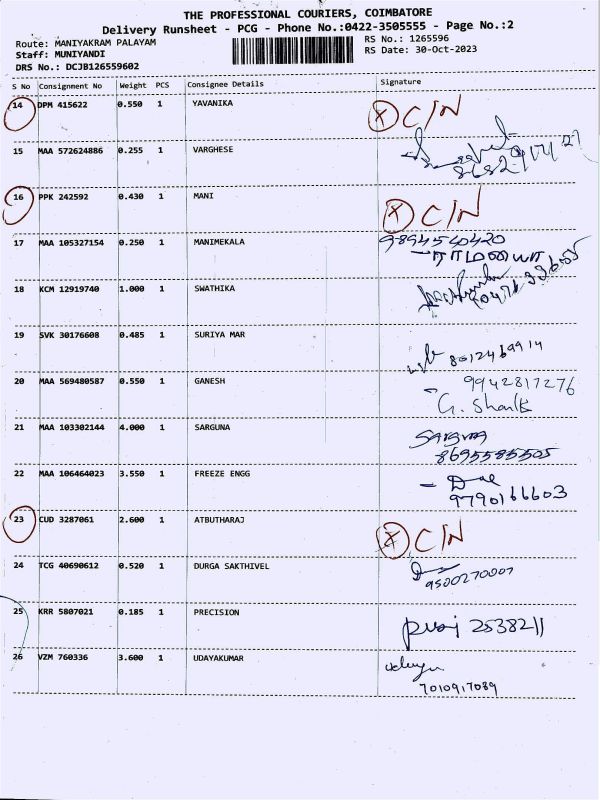 THE PROFESSIONAL COURIERS, COIMBATORE
Delivery Runsheet - PCG - Phone No.:0422-3505555 - Page No.:2
Route: MANIYAKRAM PALAYAM RS No.: 1265596
Staff: MUNIYANDI RS Date: 30-Oct-2023
DRS No.: DCJB126559602
S No Consignment No Weight PCS Consignee Details Signature
14 DPM 415622 0.550 1 YAVANIKA X C/N
15 MAA 572624886 0.255 1 VARGHESE
16 PPK 242592 0.430 1 MANI X C/N
17 MAA 105327154 0.250 1 MANIMEKALA 9894540420
18 KCM 12919740 1.000 1 SWATHIKA
19 SVK 30176608 0.485 1 SURIYA MAR 8012469914
20 MAA 569480587 0.550 1 GANESH 9942817276
G.
21 MAA 103302144 4.000 1 SARGUNA Sarguna
8695585505
22 MAA 106464023 3.550 1 FREEZE ENGG
9790166603
23 CUD 3287061 2.600 1 ATBUTHARAJ X C/N
24 TCG 40690612 0.520 1 DURGA SAKTHIVEL
9500270007
25 KRR 5807021 0.185 1 PRECISION 2538211
26 VZM 760336 3.600 1 UDAYAKUMAR
7010917089